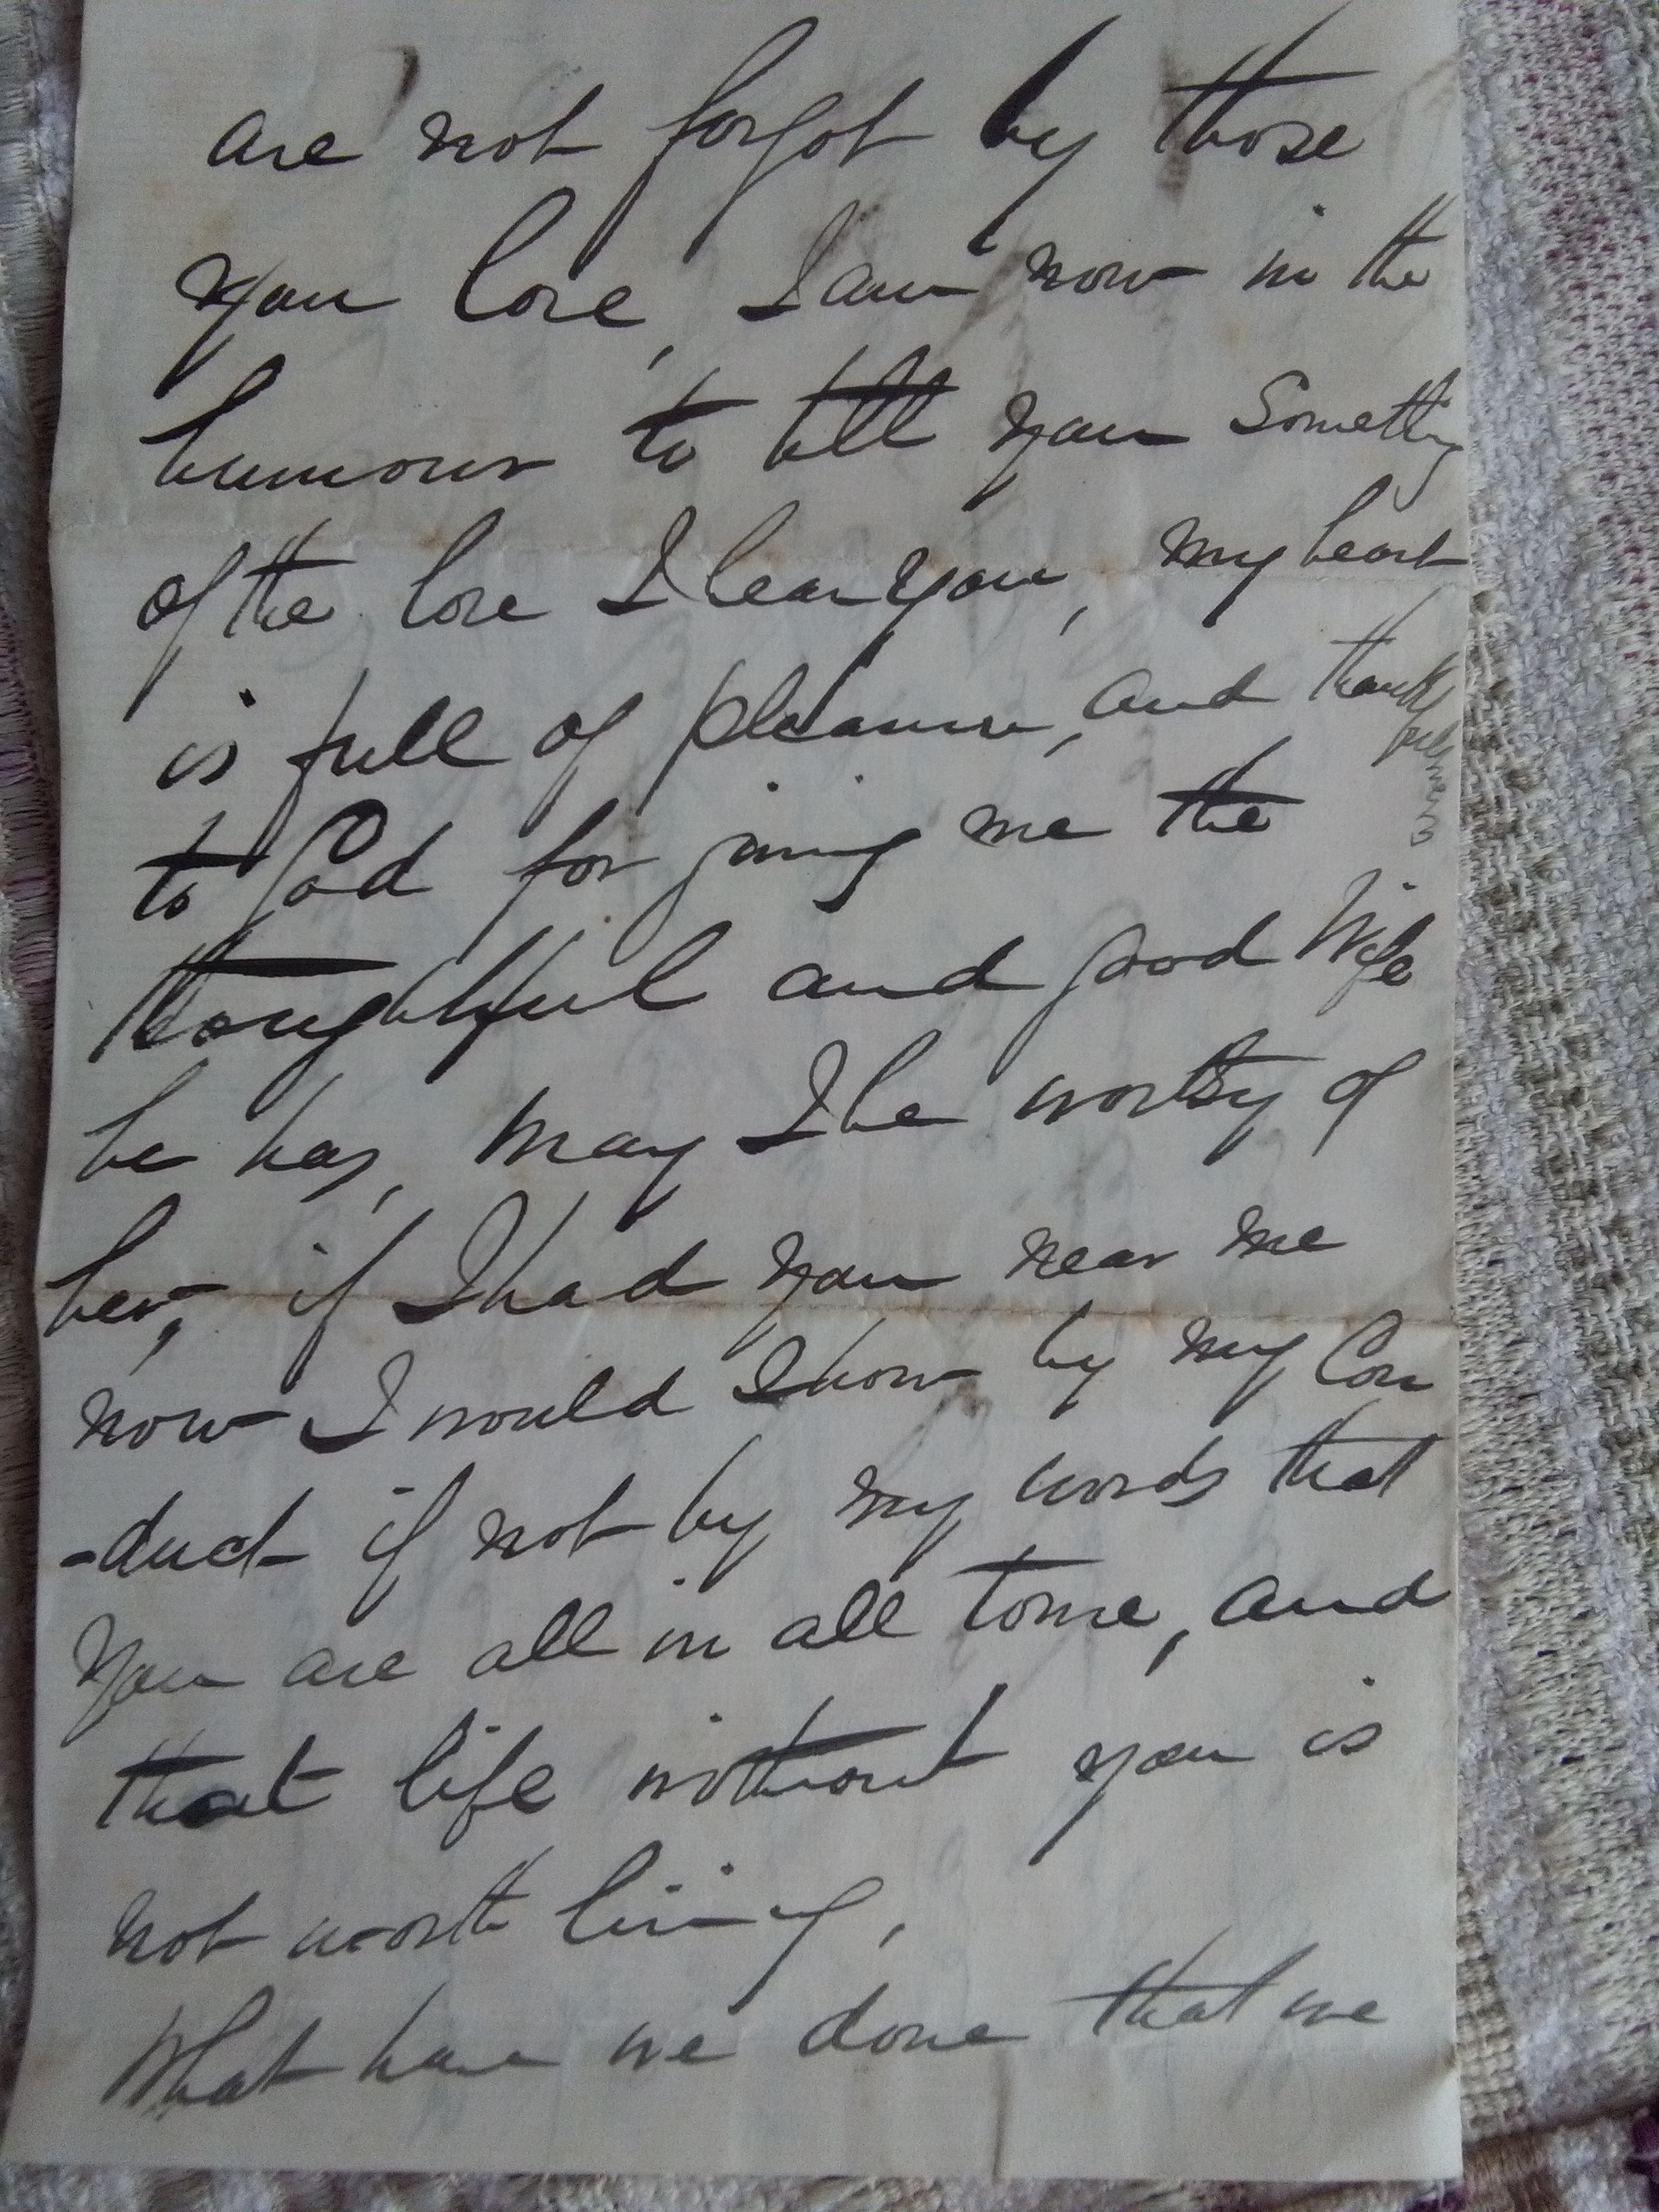 are not forgot by those
you love, I am now in the
humour to tell you Something
of the love I bear you, my heart
is full of pleasure, and thankfulness
to God for giving me the
thoughtful and good Wife
he has, may I be worthy of
her, if I had you near me
now I would Show by my Con
-duct if not by my words that
You are all in all to me, and
that life without you is
not worth living,
What have we done that we